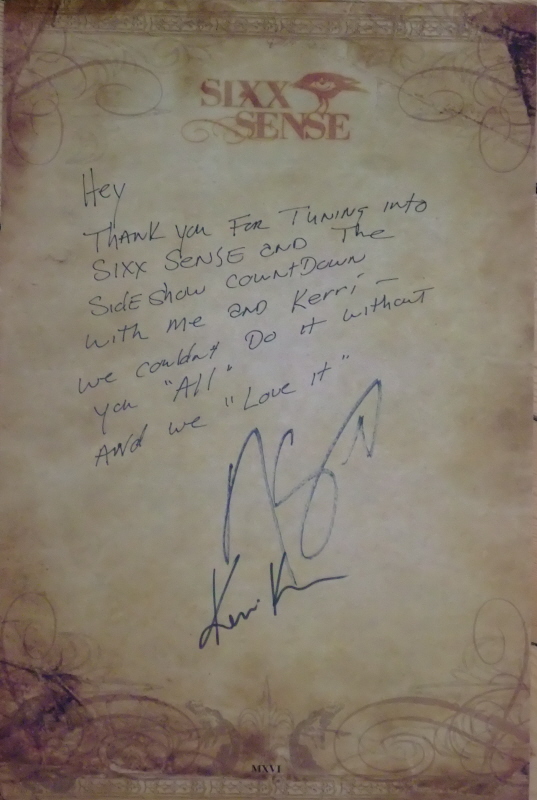 SIXX
SENSE
Hey
THANK you FOR TUNING into
SIXX SENSE AND The
SIDESHOW COUNTDOWN
with me AND Kerri –
we couldn't Do it without
you "All"
AND we "Love it"
MXVI